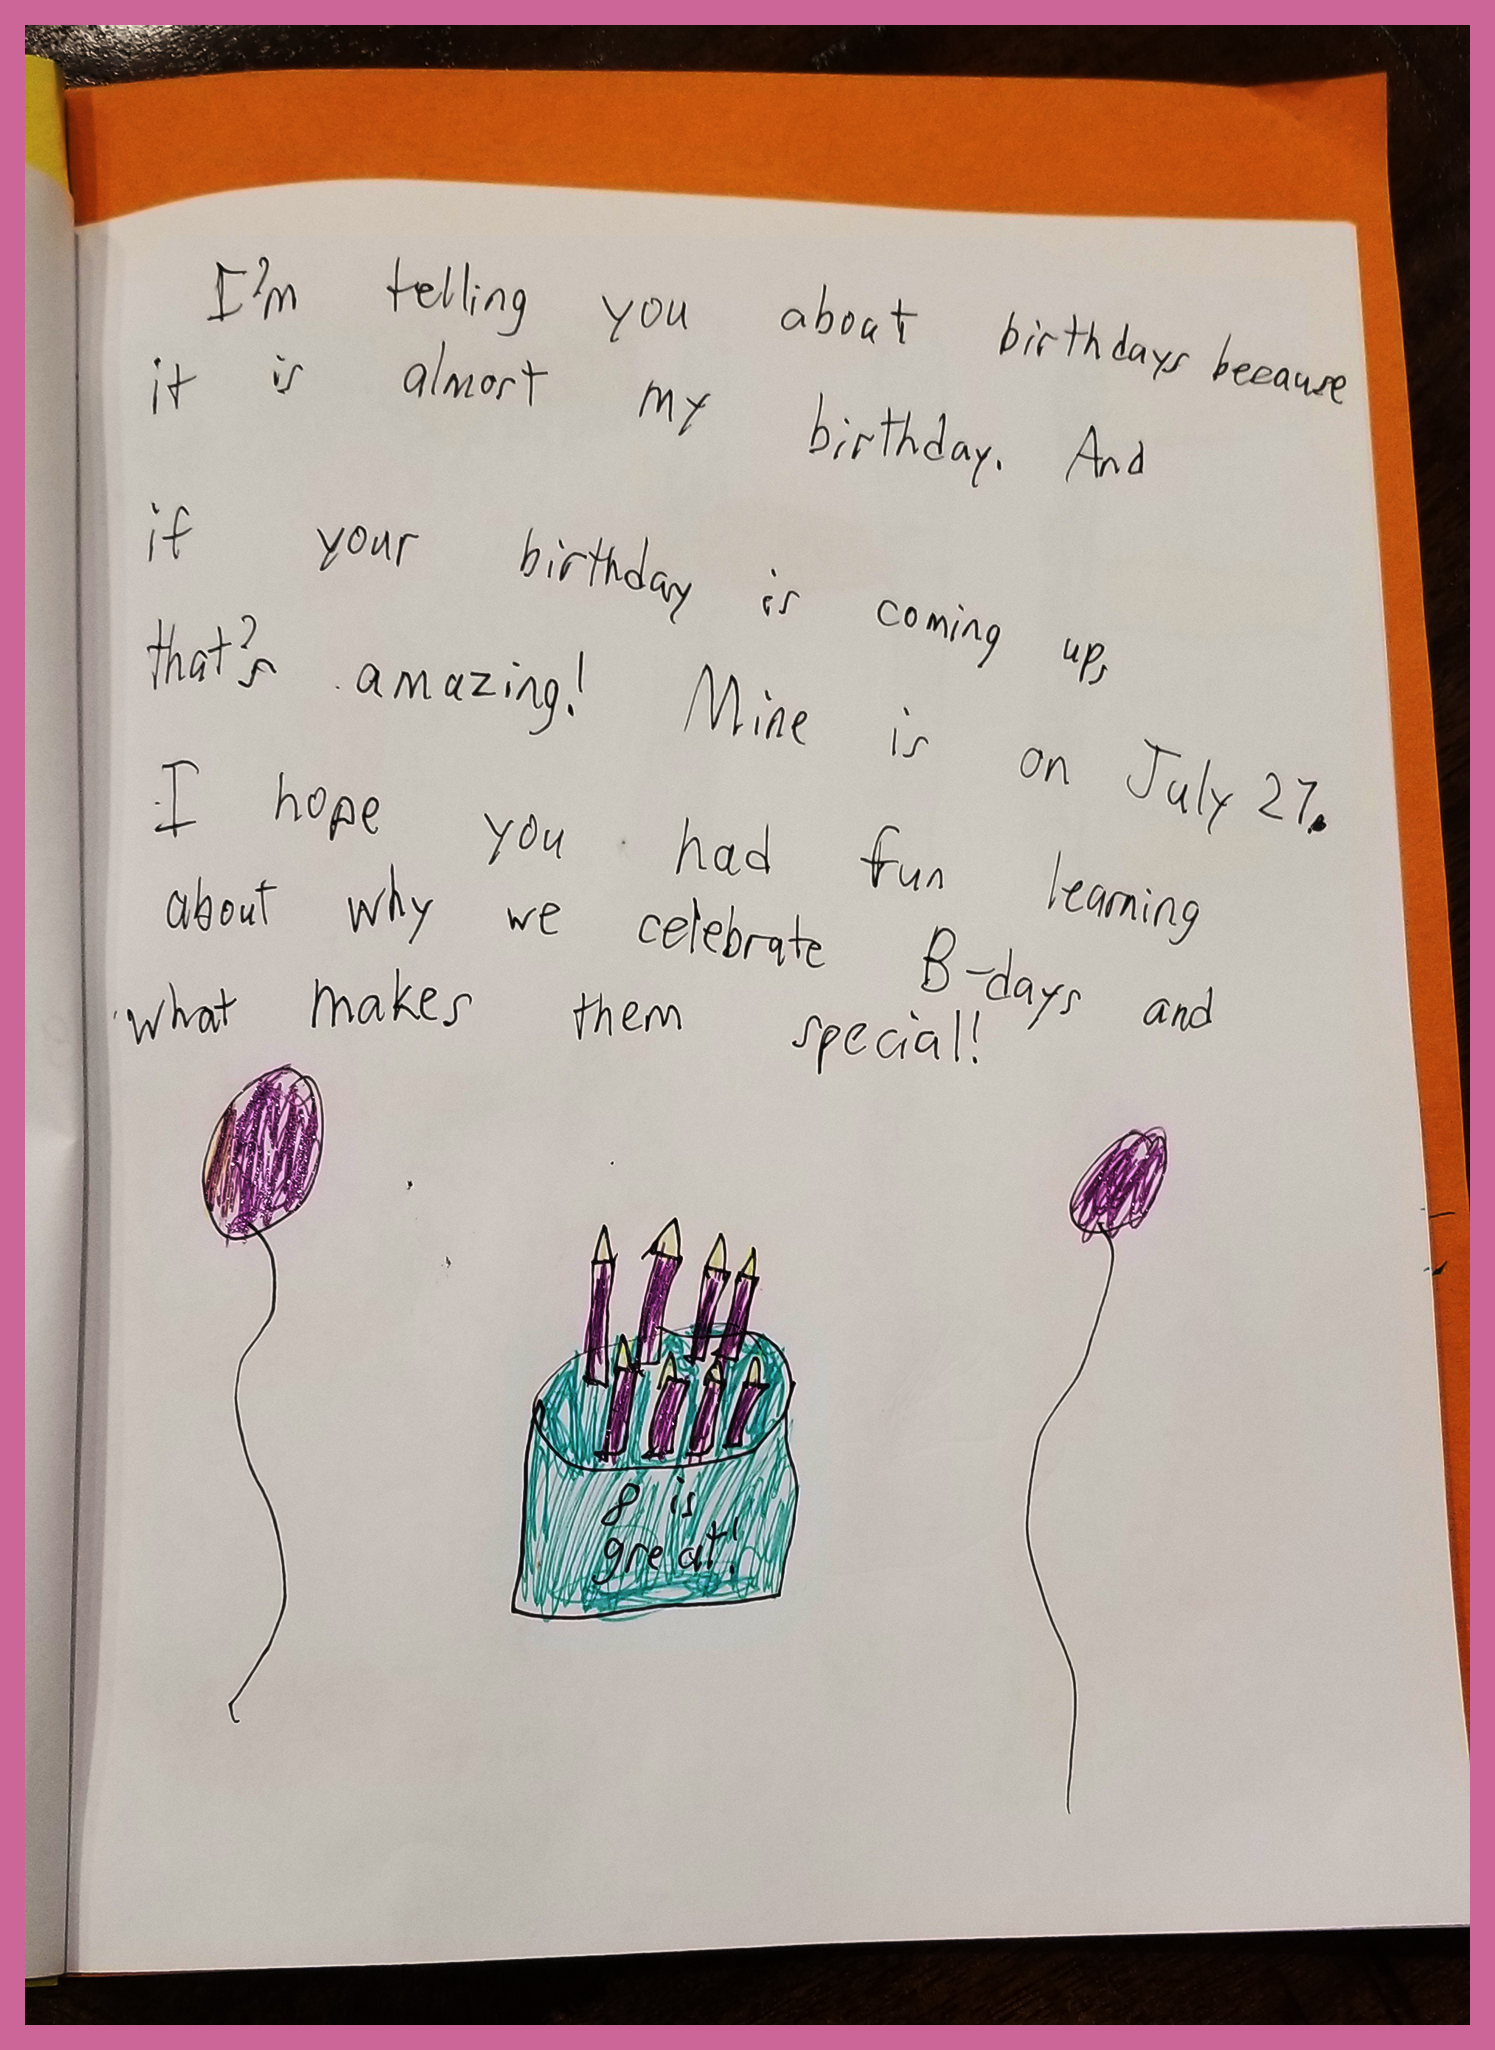 I'm telling you about birthdays because
it is almost my birthday. And
if your birthday is coming up,
that's amazing! Mine is on July 27.
I hope you had fun learning
about why we celebrate B-days and
what makes them special!
8 is
great!